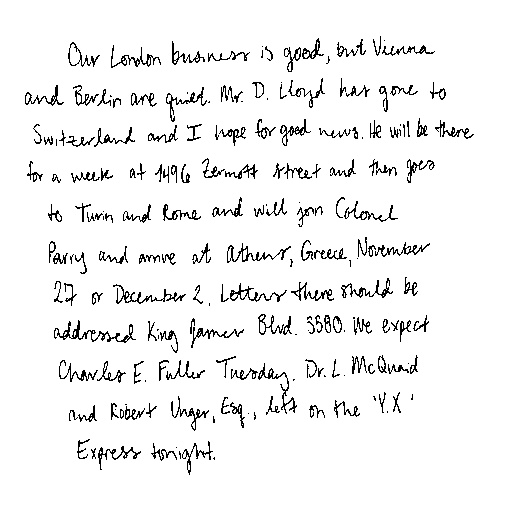 Our London business is good, but Vienna
and Berlin are quiet. Mr. D. Lloyd has gone to
Switzerland and I hope for good news. He will be there
for a week at 1496 Zermott street and then goes
to Turin and Rome and will join Colonel
Parry and arrive at Athens, Greece, November
27 or December 2. Letters there should be
addressed King James Blvd. 3580. We expect
Charles E. Fuller Tuesday. Dr. L. McQuaid
and Robert Unger, Esq., left on the 'Y.X'
Express tonight.